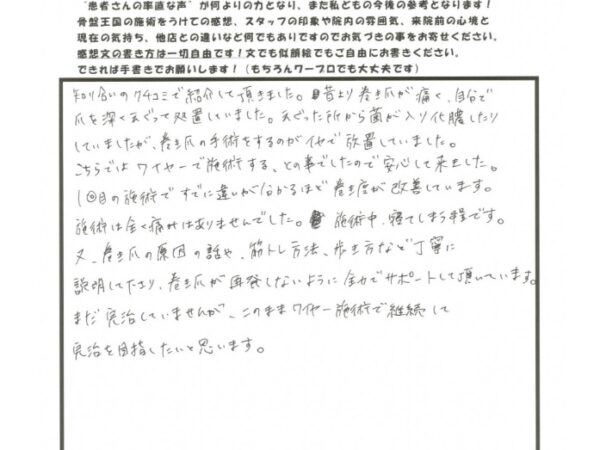 "患者さんの率直な声"が何よりの力となり、また私どもの今後の参考となります!
骨盤王国の施術をうけての感想、スタッフの印象や院内の雰囲気、来院前の心境と
現在の気持ち、他店との違いなど何でもありですのでお気づきの事をお寄せください。
感想文の書き方は一切自由です!文でも似顔絵でもご自由にお書きください。
できれば手書きでお願いします!(もちろんワープロでも大丈夫です)
知り合いの クチコミで紹介して頂きました。昔より巻き爪が痛く、自分で
爪を深くえぐって処置していました。えぐった所から菌が入り化膿したり
していましたが、巻き爪の手術をするのがイヤで放置していました。
こちらでは ワイヤーで施術する、との事でしたので安心して来ました。
1回目の施術で すでに違いが分かるほど 巻き度が改善しています。
施術は全く痛みはありませんでした。施術中、寝てしまう程です。
又、巻き爪の原因の話や、筋トレ方法、歩き方など丁寧に
説明して下さり、巻き爪が再発しないように全力でサポートして頂いています。
まだ完治していませんが、このままワイヤー施術で継続して
完治を目指したいと思います。